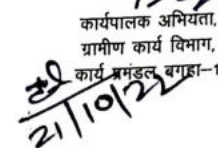 कार्यपालक अभियंता,
ग्रामीण कार्य विभाग,
कार्य प्रमंडल बगहा–1
21/10/22